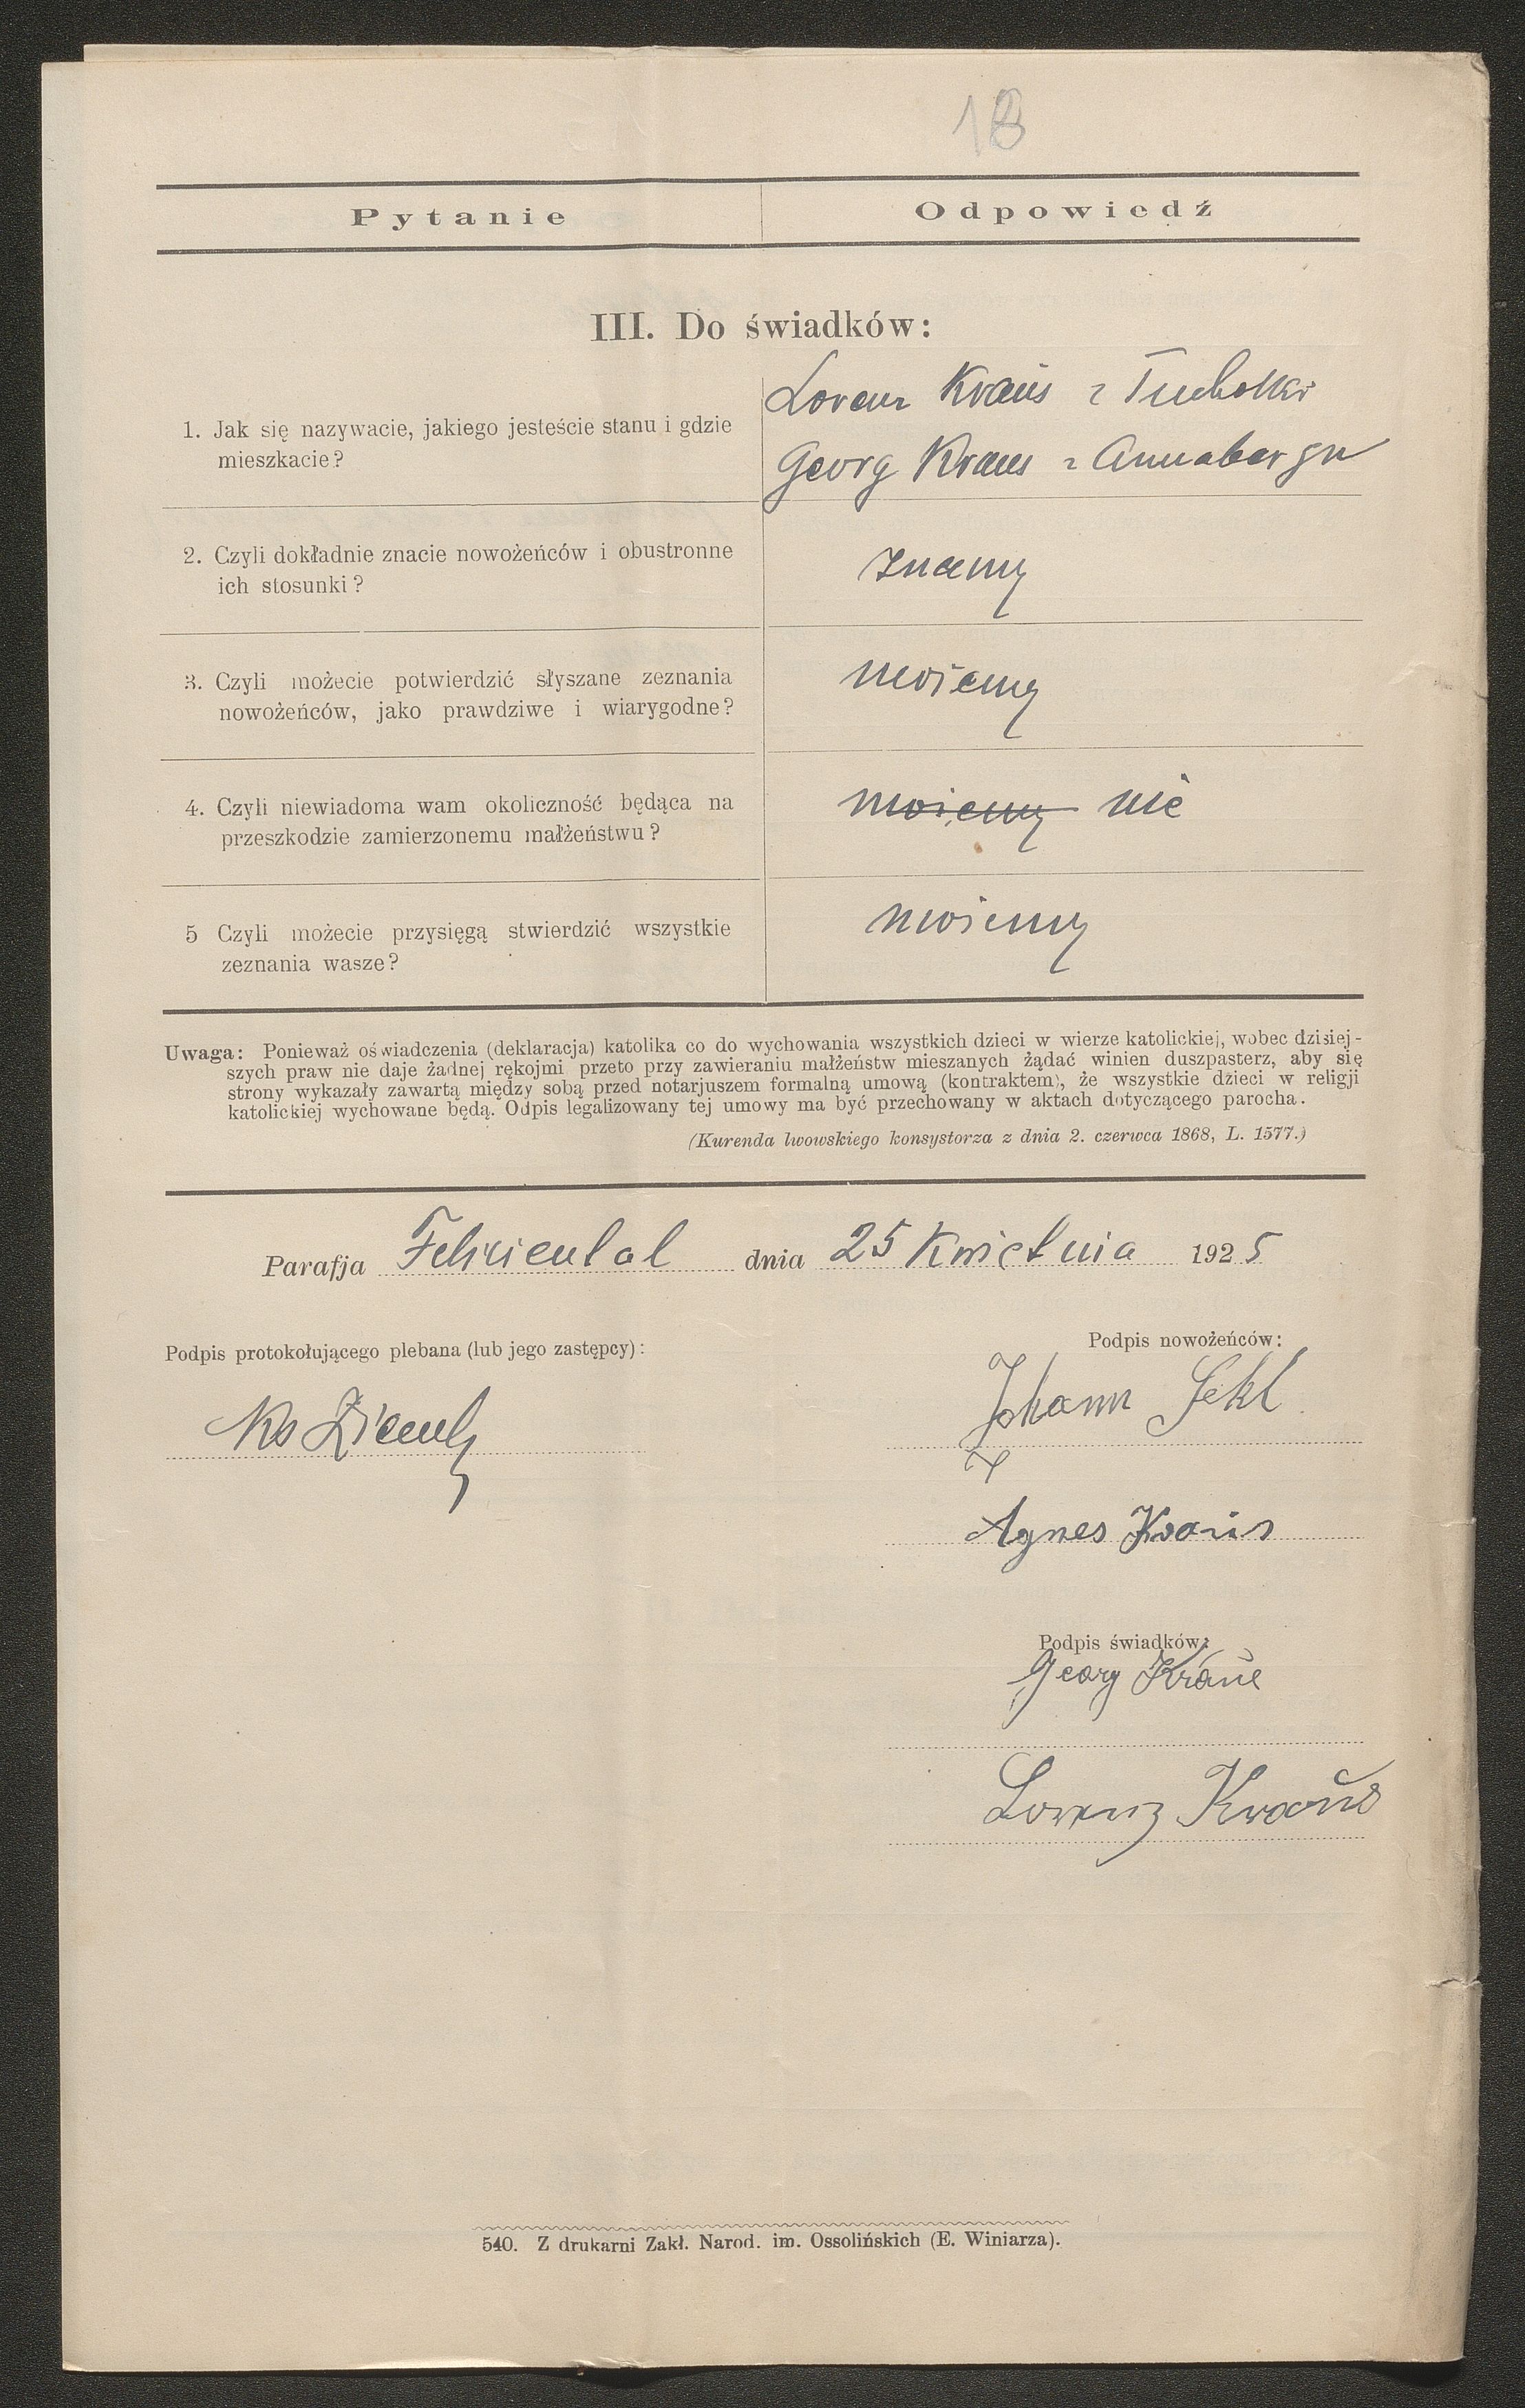 18
Pytanie
Odpowiedź
III. Do świadków:
1. Jak się nazywacie, jakiego jesteście stanu i gdzie
mieszkacie?
Lorenz Kraus z Tucholki
Georg Kraus z Annabergu
2. Czyli dokładnie znacie nowożeńców i obustronne
ich stosunki?
znamy
3. Czyli możecie potwierdzić słyszane zeznania
nowożeńców, jako prawdziwe i wiarygodne?
możemy
4. Czyli niewiadoma wam okoliczność będąca na
przeszkodzie zamierzonemu małżeństwu?
możemy nie
5 Czyli możecie przysięgą stwierdzić wszystkie
zeznania wasze?
możemy
Uwaga: Ponieważ oświadczenia (deklaracja) katolika co do wychowania wszystkich dzieci w wierze katolickiej, wobec dzisiej-
szych praw nie daje żadnej rękojmi przeto przy zawieraniu małżeństw mieszanych żądać winien duszpasterz, aby się
strony wykazały zawartą między sobą przed notarjuszem formalną umową (kontraktem), że wszystkie dzieci w religji
katolickiej wychowane będą. Odpis legalizowany tej umowy ma być przechowany w aktach dotyczącego parocha.
(Kurenda lwowskiego konsystorza z dnia 2. czerwca 1868, L. 1577.)
Parafja Feliciental dnia 25 Kwietnia 1925
Podpis protokołującego plebana (lub jego zastępcy):
Podpis nowożeńców:
Ks
Johann Sekl
Agnes Kraus
Podpis świadków:
Georg Kraus
Lorenz Kraus
540. Z drukarni Zakł. Narod. im. Ossolińskich (E. Winiarza).